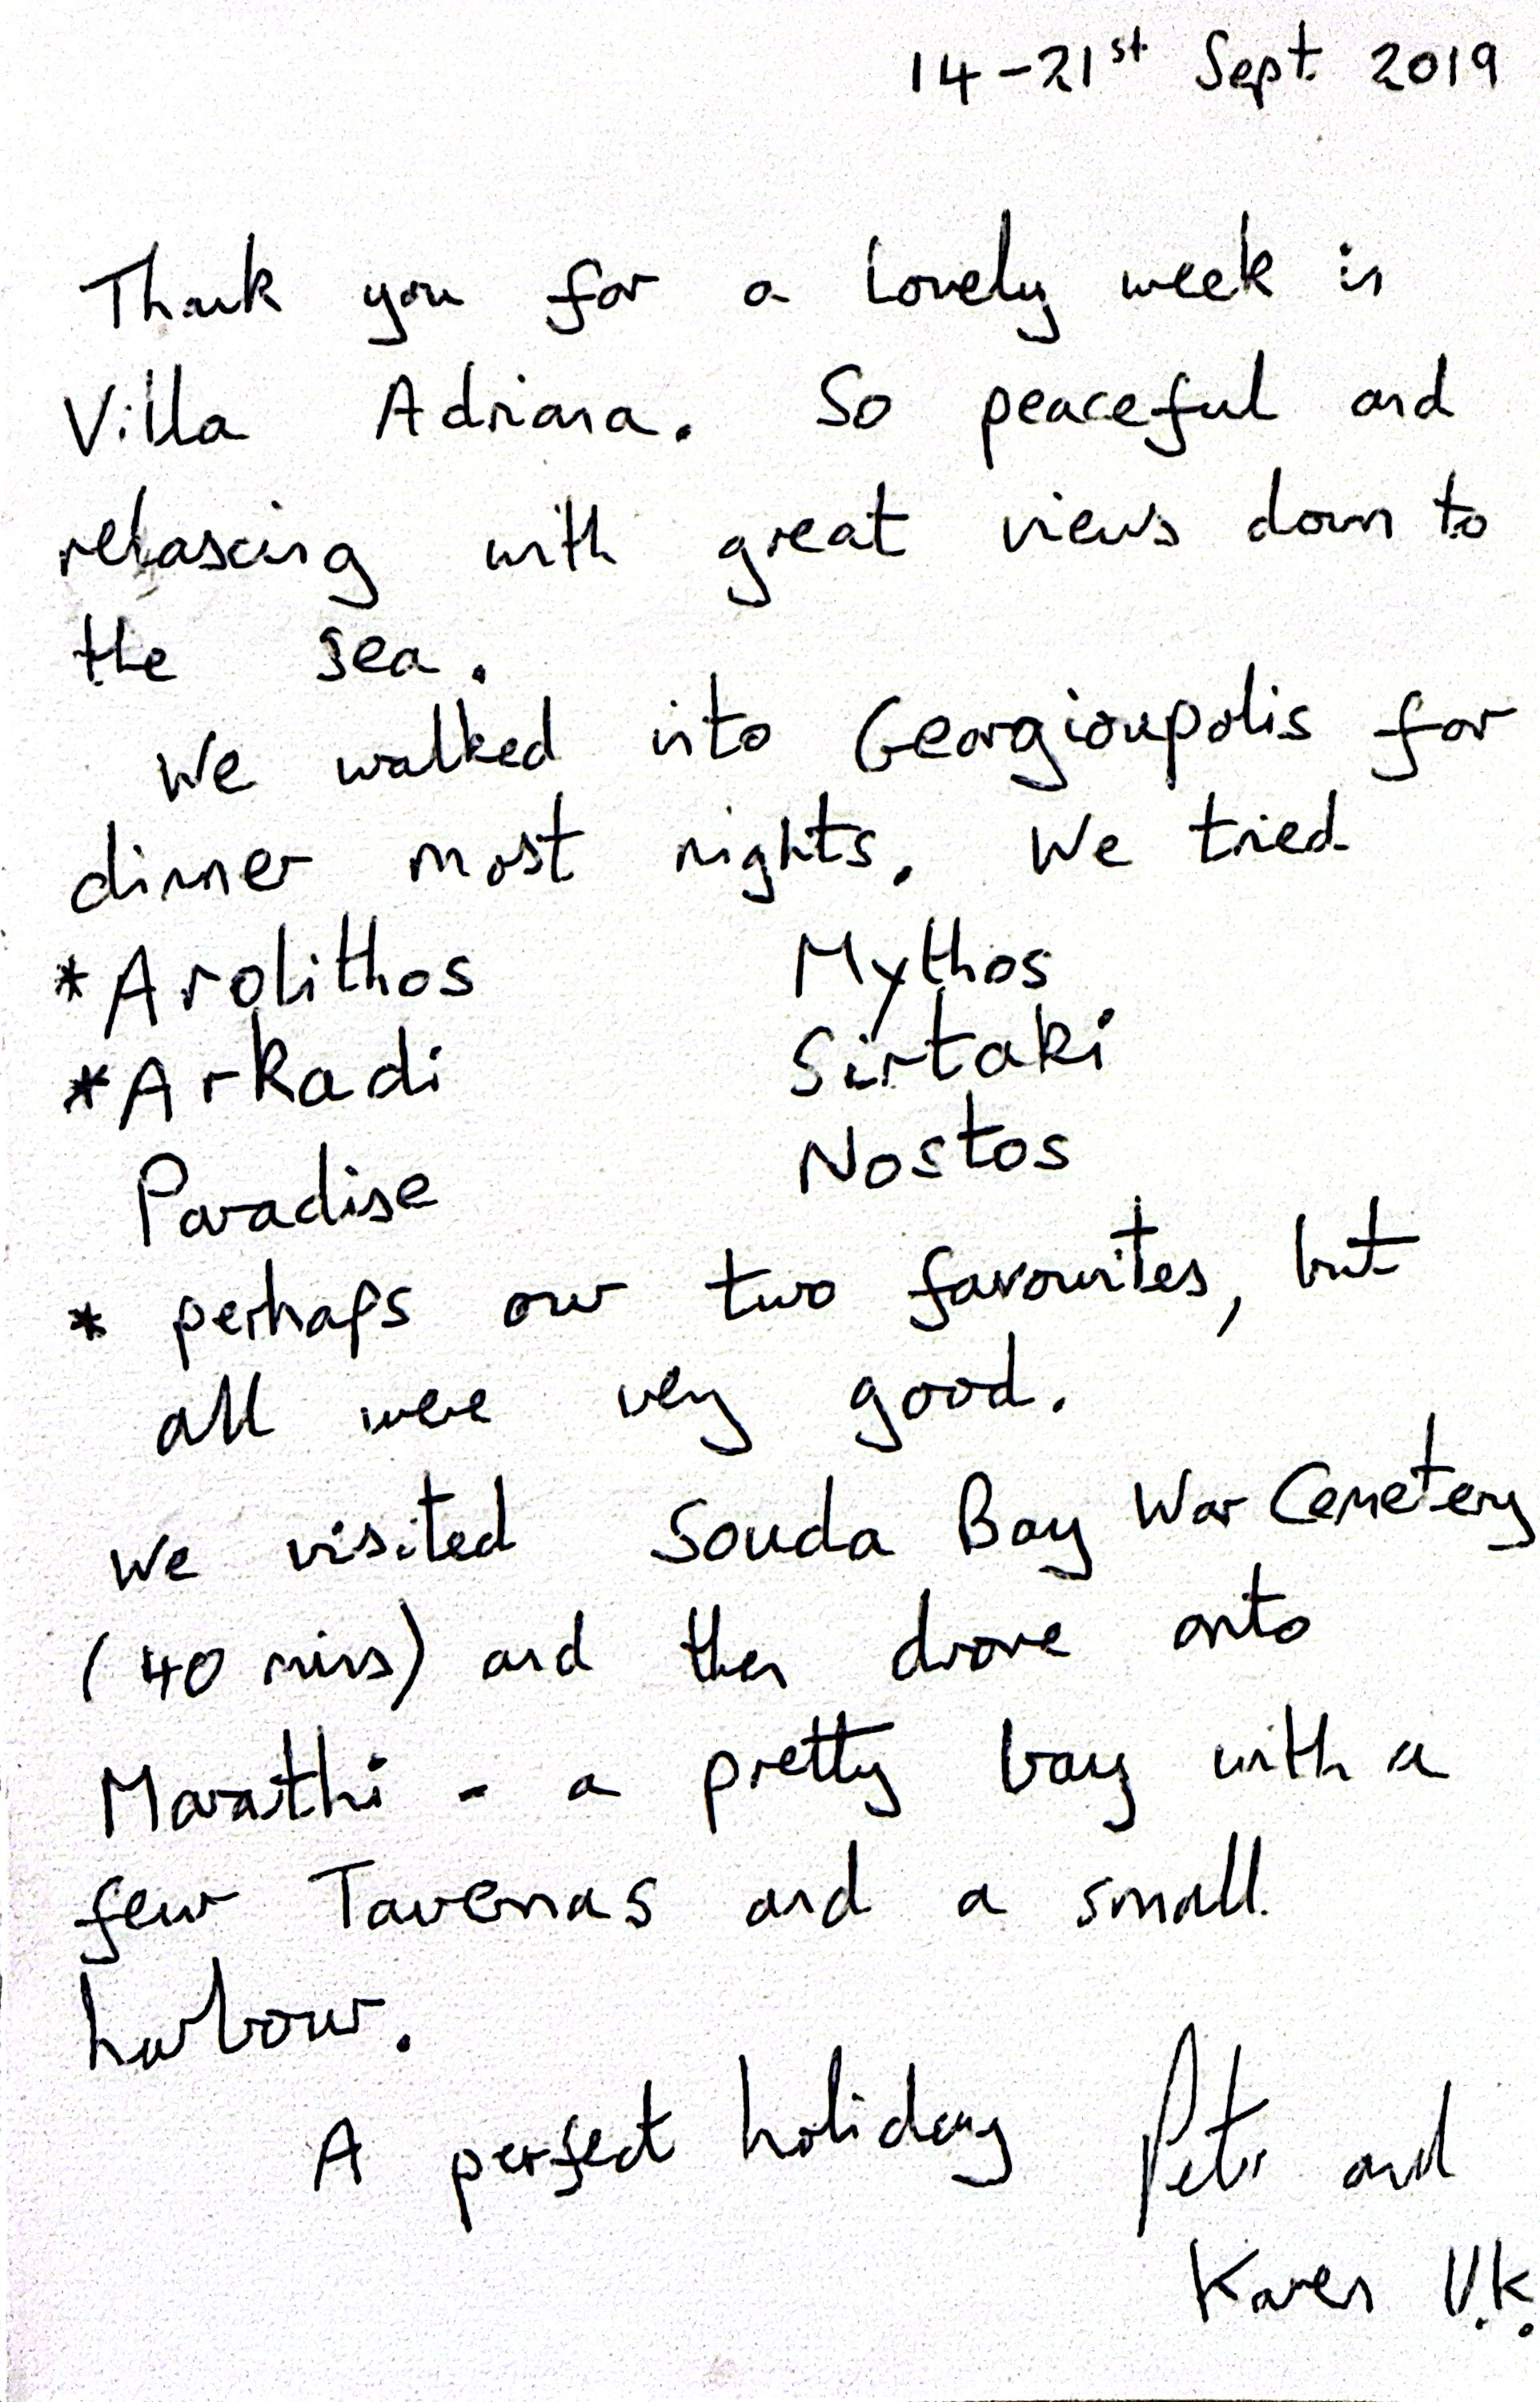 14-21st Sept. 2019
Thank you for a lovely week in
Villa Adriana. So peaceful and
relaxing with great views down to
the sea.
We walked into Georgioupolis for
dinner most nights. We tried
*Arolithos Mythos
*Arkadi Sirtaki
Paradise Nostos
* perhaps our two favourites, but
all were very good.
We visited Souda Bay War Cemetery
(40 mins) and then drove onto
Marathi - a pretty bay with a
few Tavernas and a small
harbour.
A perfect holiday Peter and
Karen U.K.